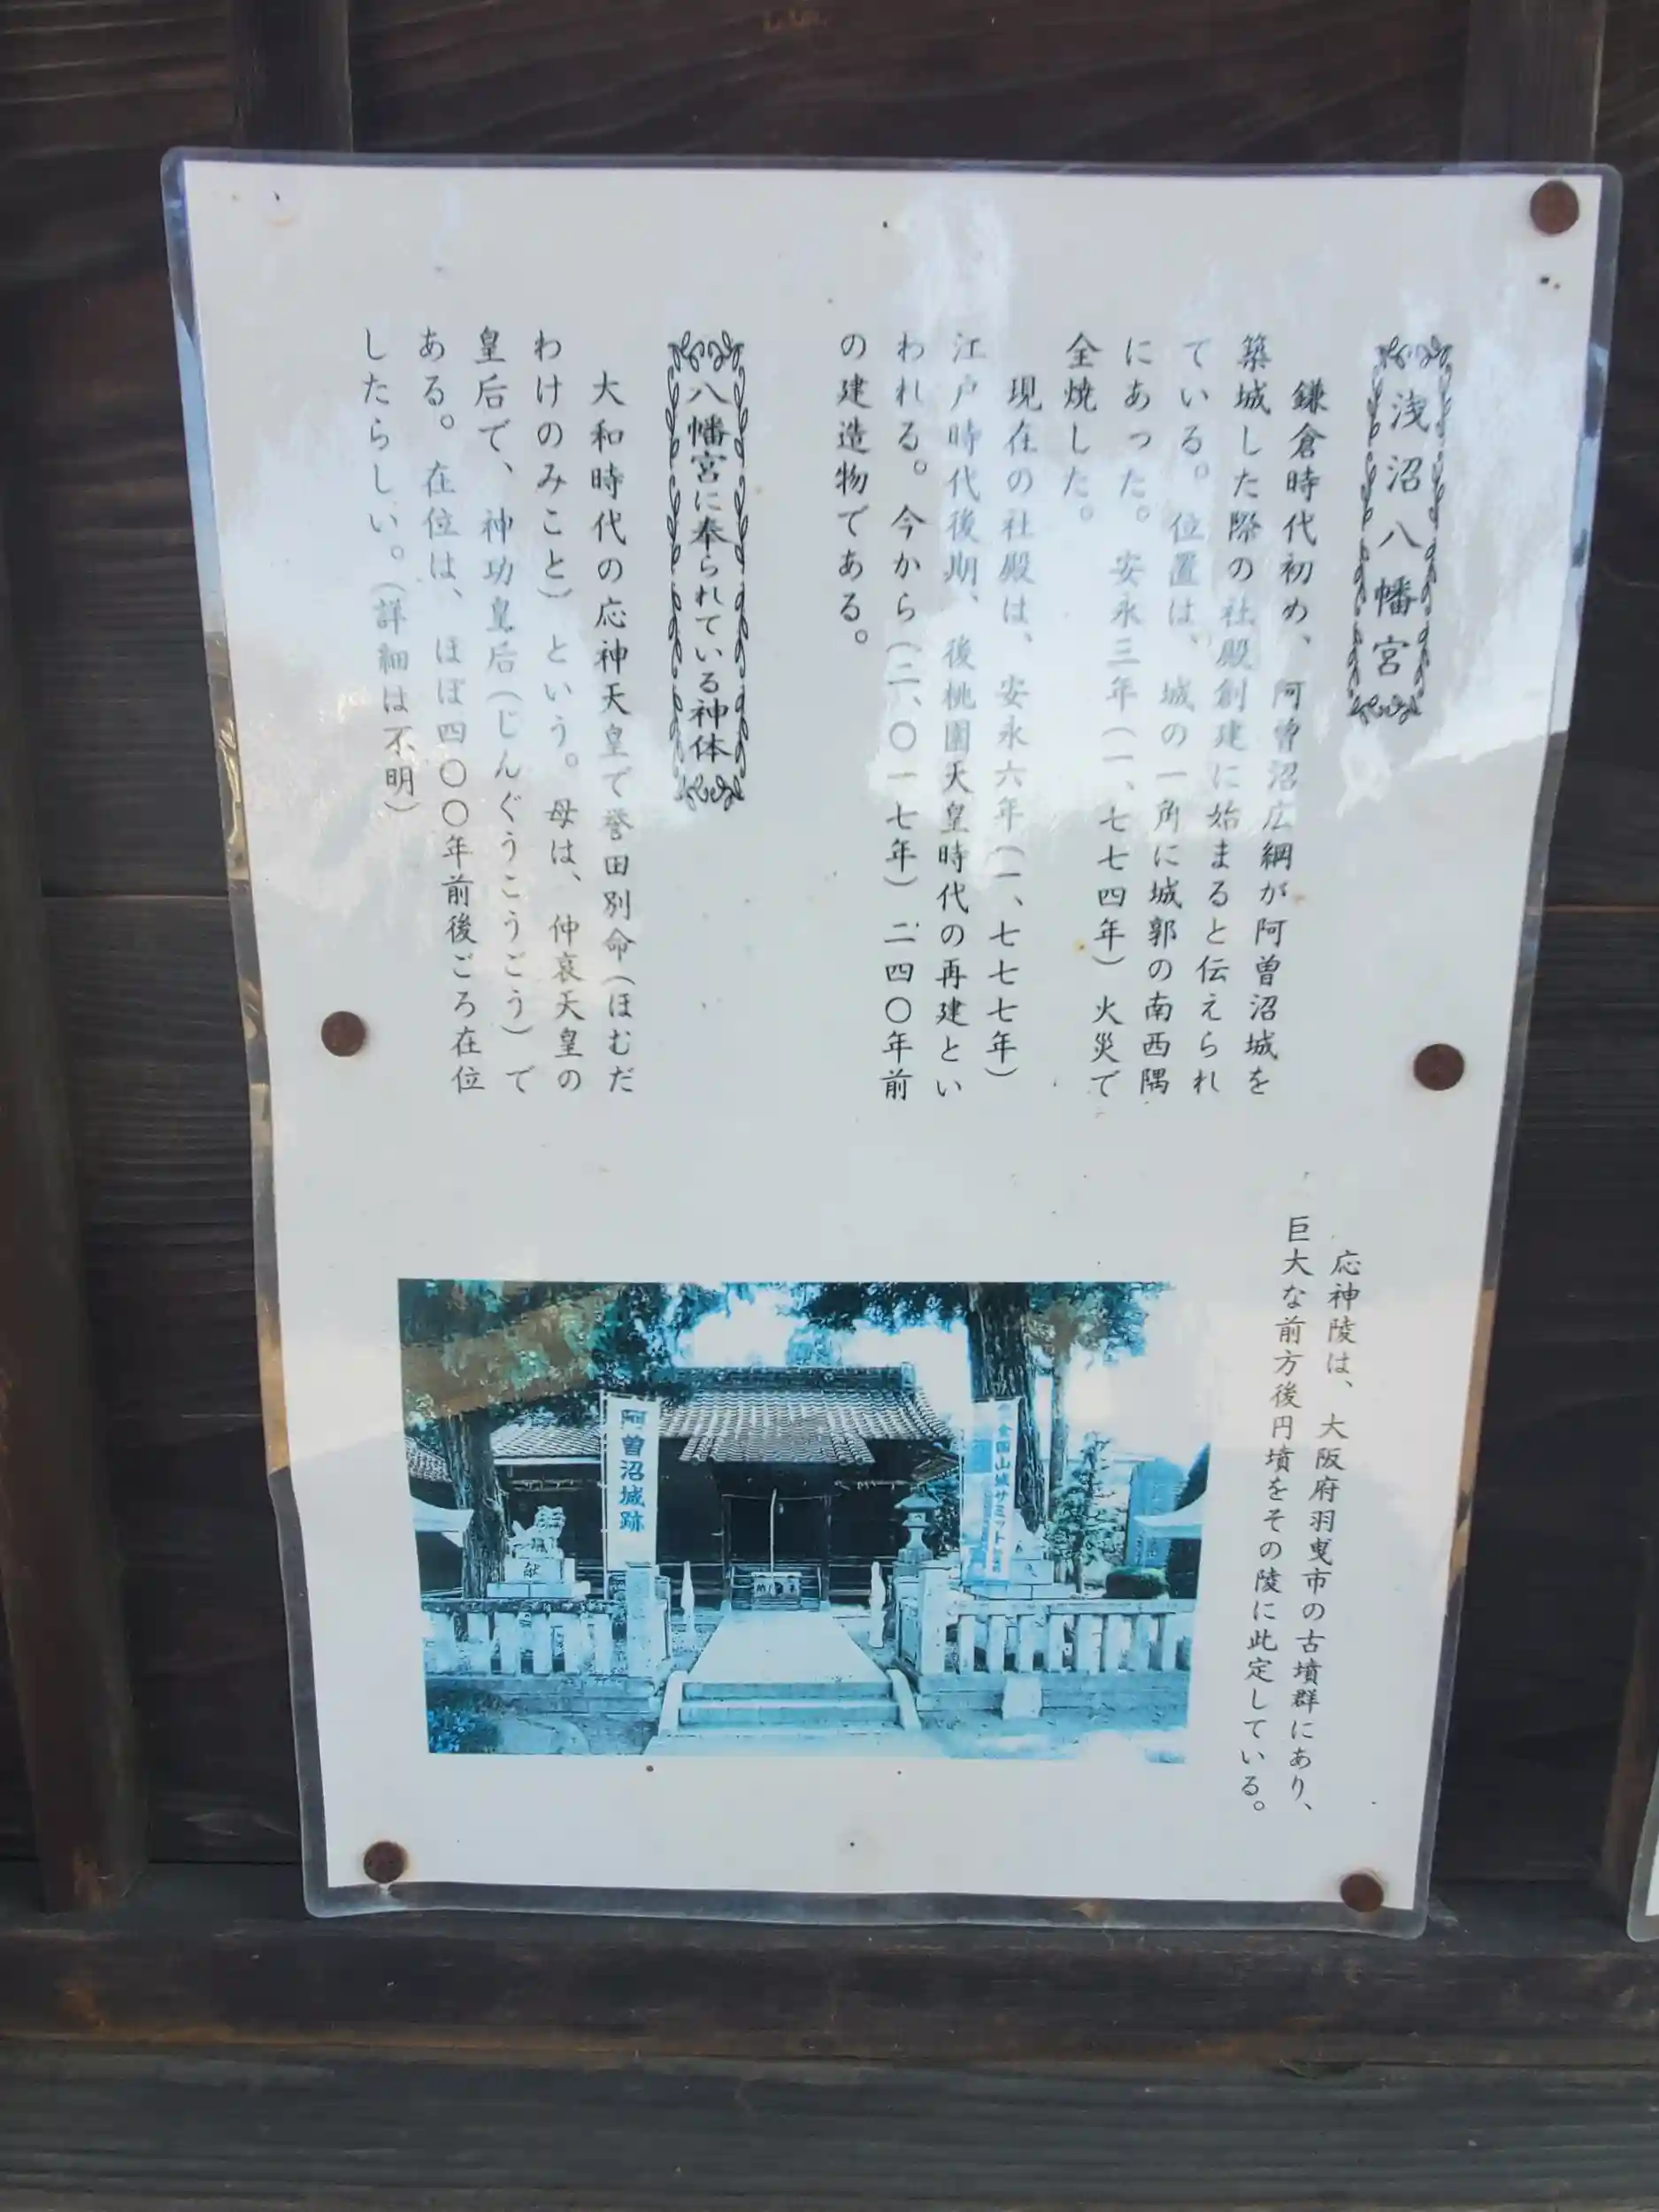 浅沼八幡宮
鎌倉時代初め、阿曽沼広綱が阿曽沼城を
築城した際の社殿創建に始まると伝えられ
ている。位置は、城の一角に城郭の南西隅
にあった。安永三年（一、七七四年）火災で
全焼した。
現在の社殿は、安永六年（一、七七七年）
江戸時代後期、後桃園天皇時代の再建とい
われる。今から（二、〇一七年）二四〇年前
の建造物である。
八幡宮に奉られている神体
大和時代の応神天皇で誉田別命（ほむだ
わけのみこと）という。母は、仲哀天皇の
皇后で、神功皇后（じんぐうこうごう）で
ある。在位は、ほぼ四〇〇年前後ごろ在位
したらしい。（詳細は不明）
応神陵は、大阪府羽曳市の古墳群にあり、
巨大な前方後円墳をその陵に此定している。
阿曽沼城跡
全国山城サミット
献